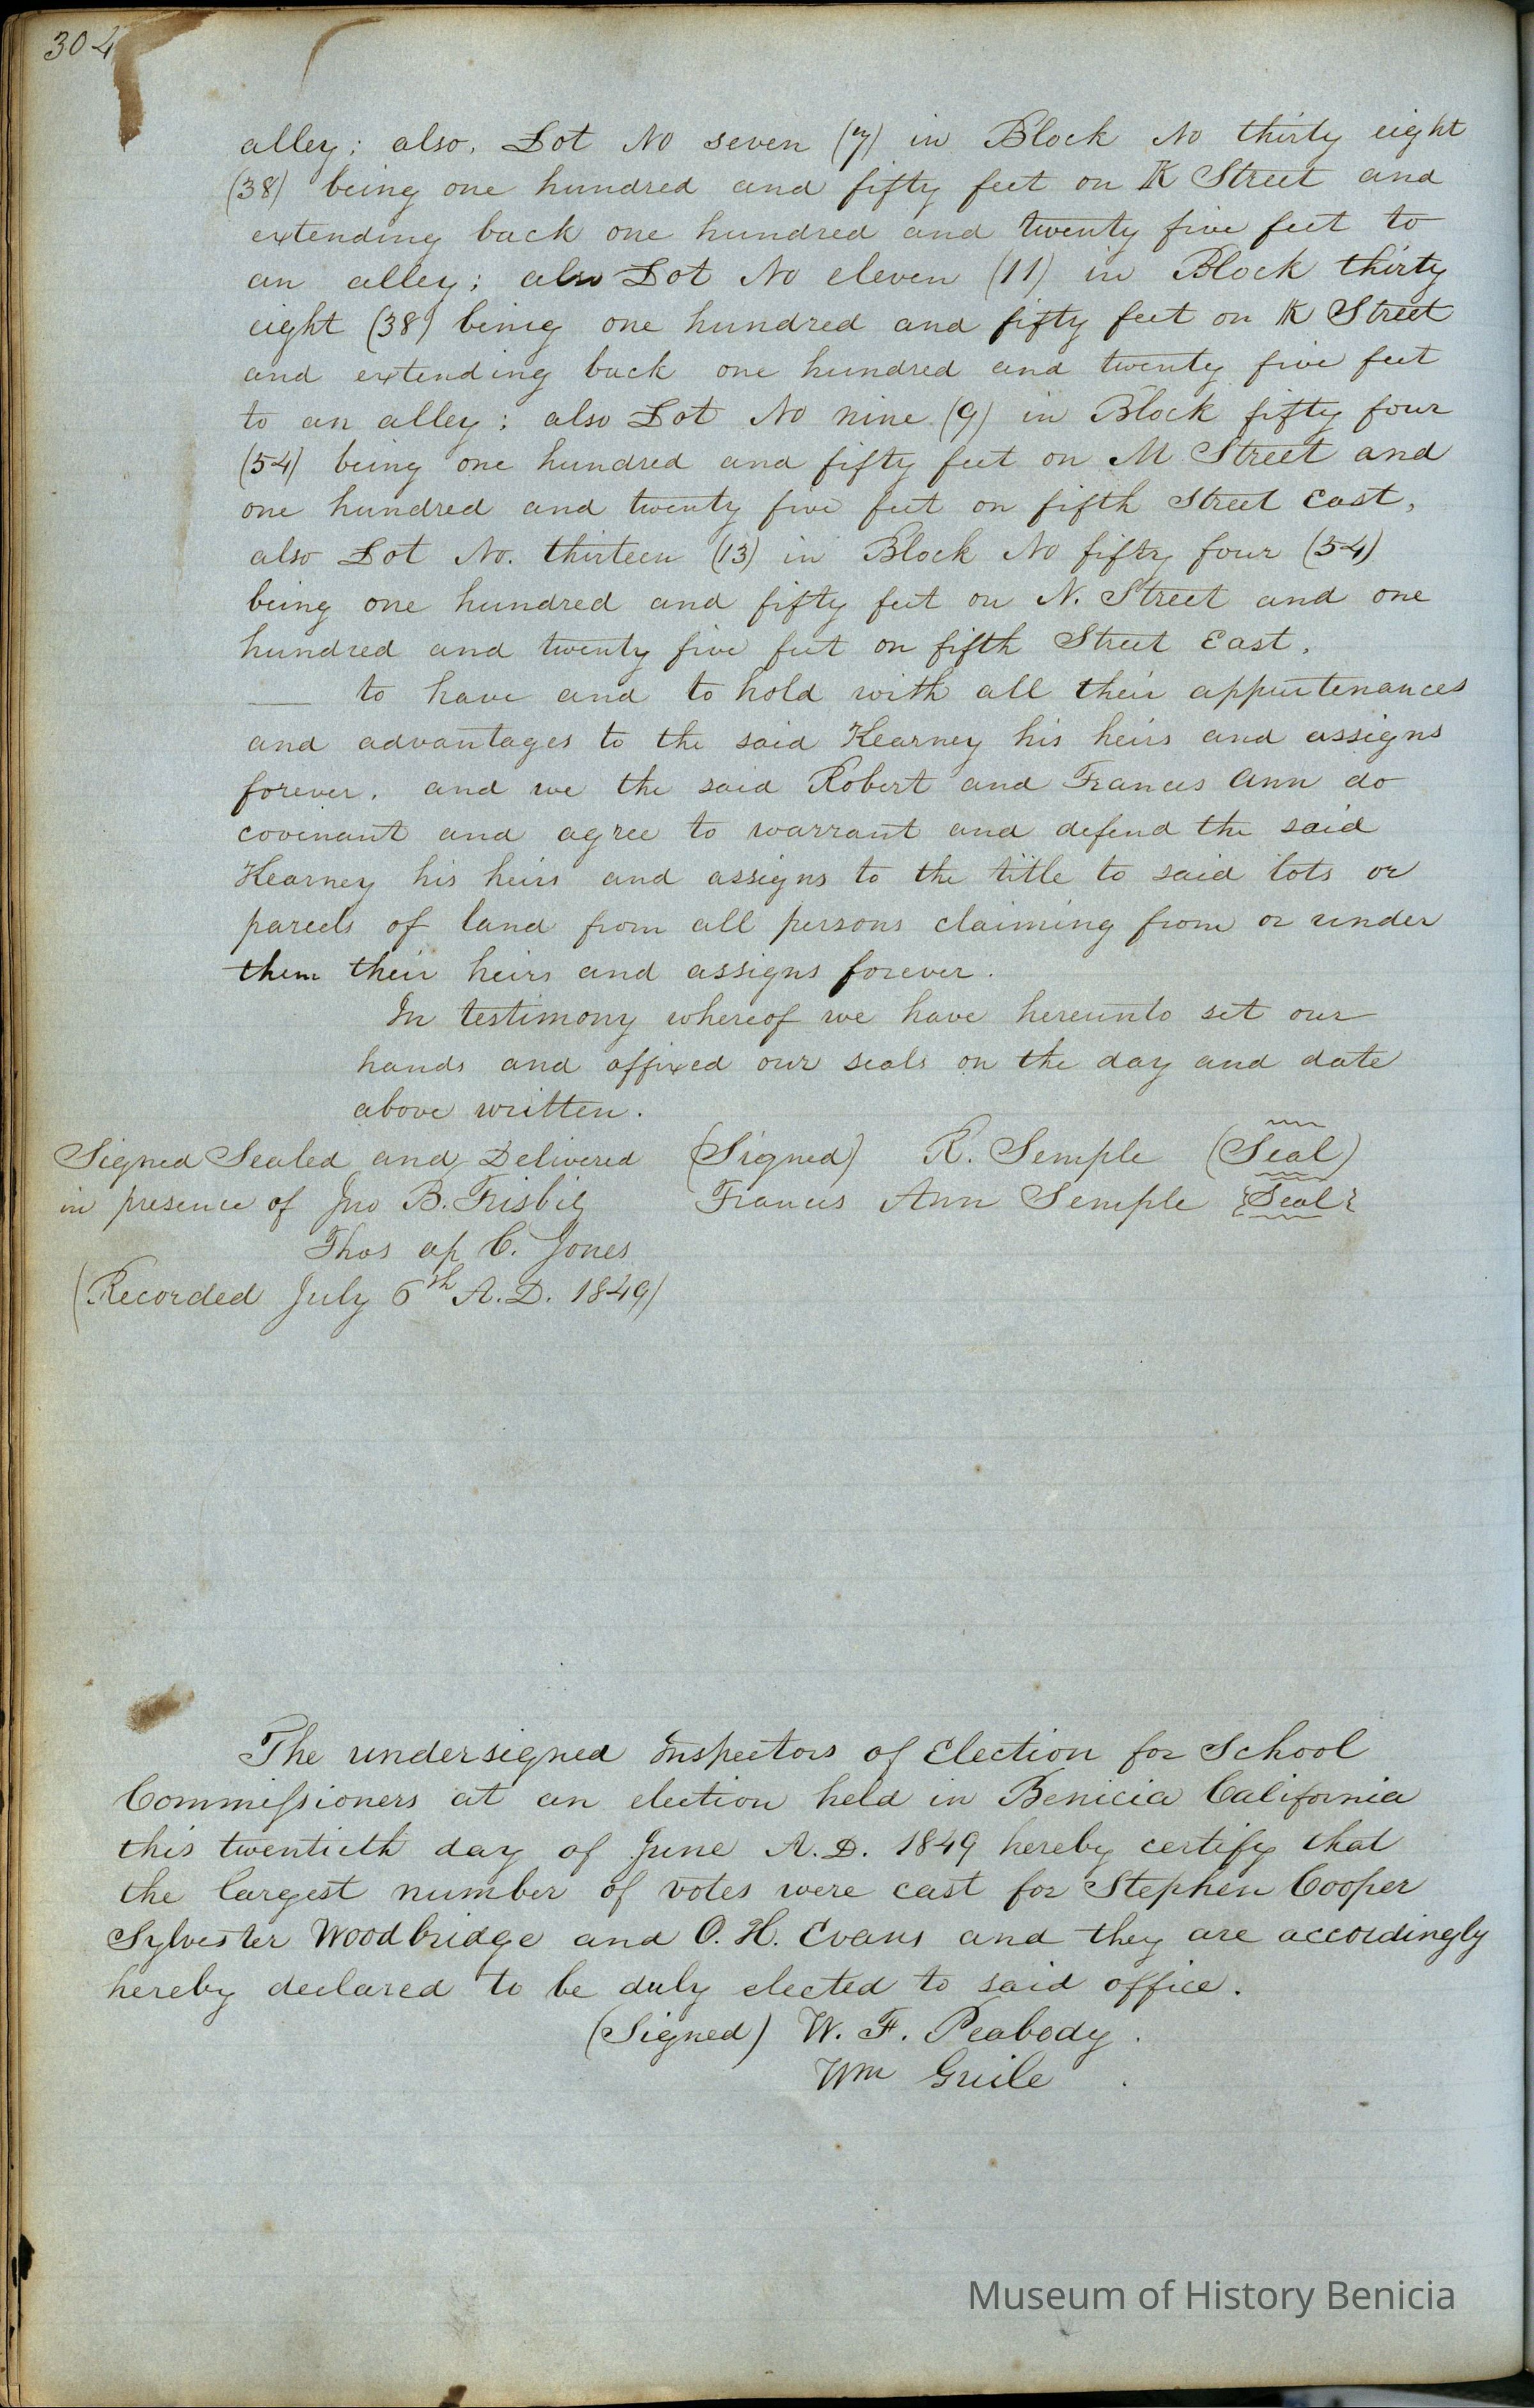 304
alley; also, Lot No seven (7) in Block No thirty eight
(38) being one hundred and fifty feet on K Street and
extending back one hundred and twenty five feet to
an alley; also Lot No eleven (11) in Block thirty
eight (38) being one hundred and fifty feet on K Street
and extending back one hundred and twenty five feet
to an alley; also Lot No nine (9) in Block fifty four
(54) being one hundred and fifty feet on M Street and
one hundred and twenty five feet on fifth Street East,
also Lot No. thirteen (13) in Block No fifty four (54)
being one hundred and fifty feet on N. Street and one
hundred and twenty five feet on fifth Street East,
— to have and to hold with all their appurtenances
and advantages to the said Kearney his heirs and assigns
forever. and we the said Robert and Frances Ann do
covenant and agree to warrant and defend the said
Kearney his heirs and assigns to the title to said lots or
parcels of land from all persons claiming from or under
them their heirs and assigns forever.
In testimony whereof we have hereunto set our
hands and affixed our seals on the day and date
above written.
Signed Sealed and Delivered (Signed) R. Semple (Seal)
in presence of Jno B. Frisbie Frances Ann Semple {Seal}
Thos ap C. Jones
(Recorded July 6th A.D. 1849)
The undersigned Inspectors of Election for School
Commissioners at an election held in Benicia California
this twentieth day of June A.D. 1849 hereby certify that
the largest number of votes were cast for Stephen Cooper
Sylvester Woodbridge and O. H. Evans and they are accordingly
hereby declared to be duly elected to said office.
(Signed) W. F. Peabody.
Wm Guile .
Museum of History Benicia